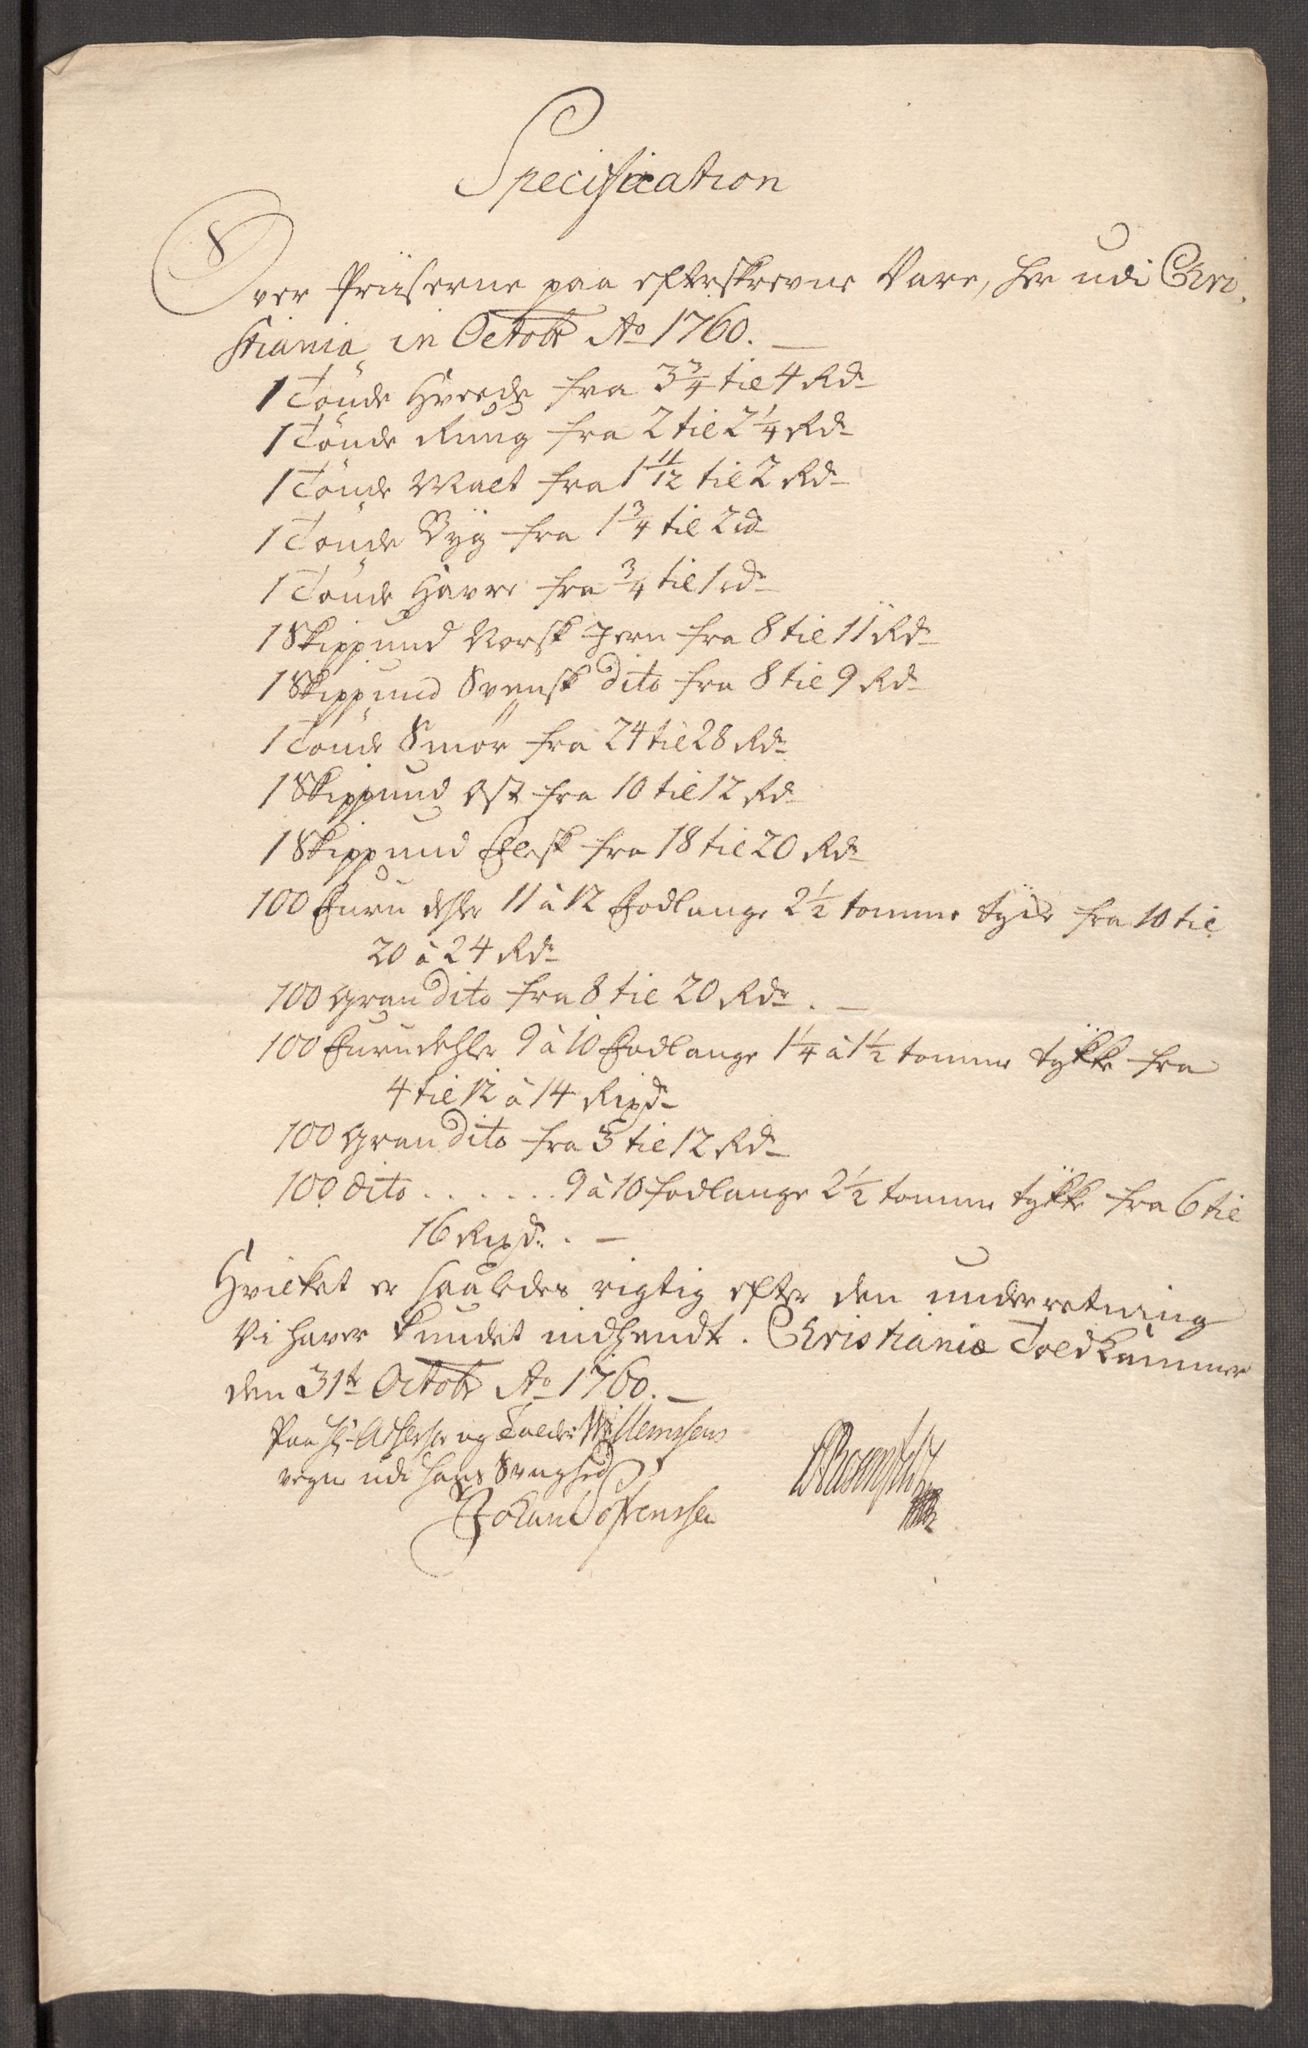 Specification
Over Priiserne paa efterskrevne Vare, her udi Chri,
stiania in Octobr Ao 1760.
1 Tønde Hvede fra 3 3/4 til 4 Rd
1 Tønde Rung fra 2 til 2 1/4 Rd
1 Tønde Malt fra 1 11/12 til 2 Rd
1 Tønde Byg fra 1 3/4 til 2 rd
1 Tønde Havre fra 3/4 til 1 rd
1 Skippund Norsk Jern fra 8 til 11 Rd
1 Skippund Svensk dito fra 8 til 9 Rd
1 Tønde Smør fra 24 til 28 Rd
1 Skippund Ost fra 10 til 12 Rd
1 Skippund Flesk fra 18 til 20 Rd
100 Furu dehler 11 à 12 Fodlange 2 1/2 tomme fra 10 til
20 à 24 Rd
100 Gran dito fra 8 til 20 Rdr. —
100 Furudehler 9 à 10 Fodlange 1 1/4 à 1 1/2 tomme tykke fra
4 til 12 à 14 Rixd
100 Gran dito fra 3 til 12 Rd
100 dito . . . . . . 9 à 10 fodlange 2 1/2 tomme tykke fra 6 til
16 Rixd. . —
Hvilket er saaledes rigtig efter den underretning
Vi haver kundet indhendt. Christiania Toldkammer
den 31te Octobr Ao 1760. —
Paa Hr og Tolder Willemsens
vegne udi hans Svaghed
Johan Sørenssen